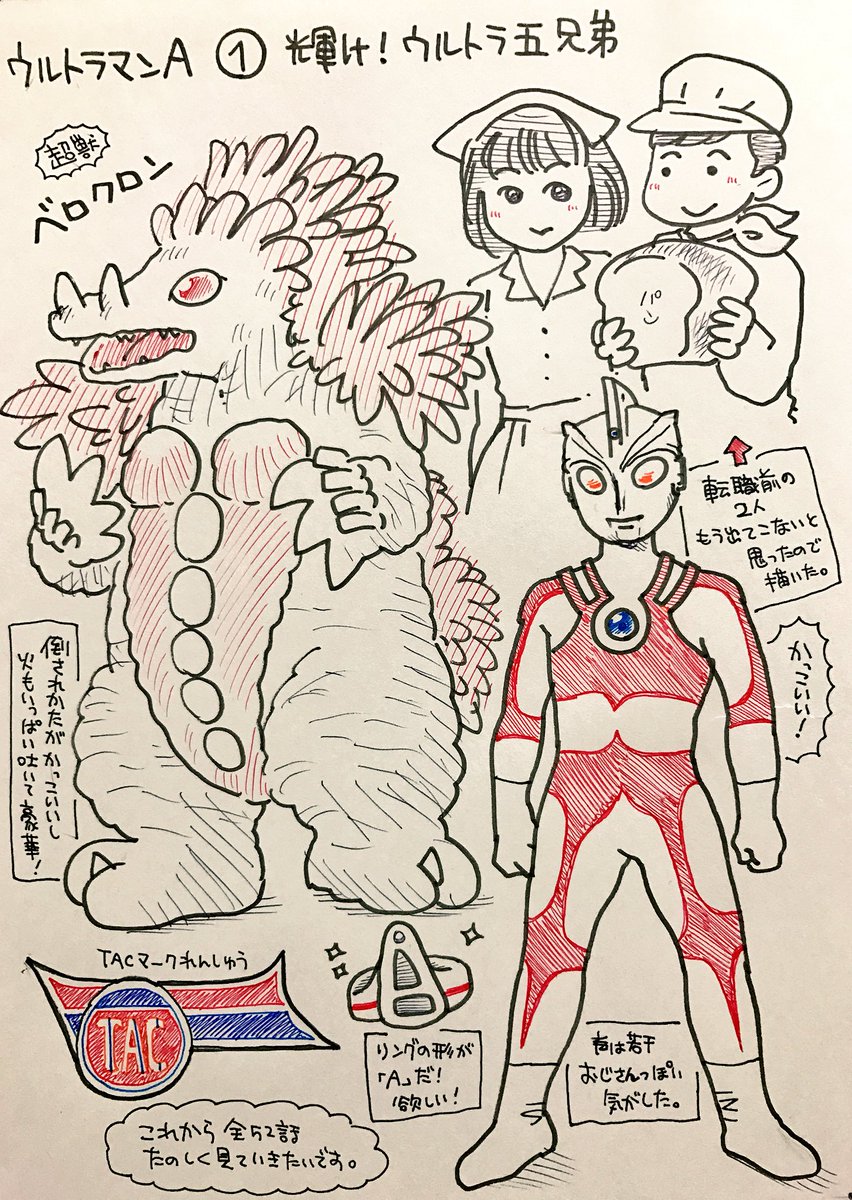 ウルトラマンA ① 輝け！ウルトラ五兄弟
超獣
ベロクロン
パン
転職前の
2人
もう出てこないと
思ったので
描いた。
かっこいい！
倒されかたがかっこいいし
火もいっぱい吐いて豪華！
TACマークれんしゅう
TAC
A
リングの形が
「A」だ！
欲しい！
声は若干
おじさんっぽい
気がした。
これから全52話
たのしく見ていきたいです。